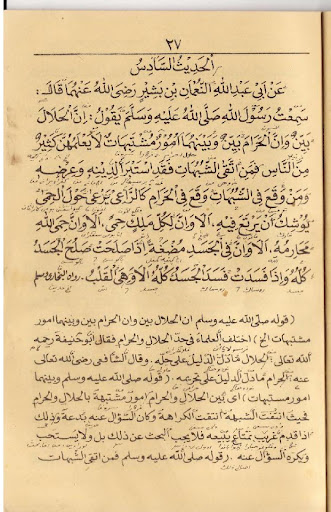 ٢٧
الحديث السادس
عن أبي عبد الله النعمان بن بشير رضي الله عنهما قال :
سمعت رسول الله صلى الله عليه وسلم يقول : إن الحلال
بين وإن الحرام بين وبينهما أمور مشتبهات لا يعلمهن كثير
من الناس فمن اتقى الشبهات فقد استبرأ لدينه وعرضه
ومن وقع في الشبهات وقع في الحرام كالراعي يرعى حول الحمى
يوشك أن يرتع فيه . ألا وإن لكل ملك حمى . ألا وإن حمى الله
محارمه . ألا وإن في الجسد مضغة إذا صلحت صلح الجسد
كله وإذا فسدت فسد الجسد كله ألا وهي القلب . رواه البخاري ومسلم
( قوله صلى الله عليه وسلم إن الحلال بين وإن الحرام بين وبينهما أمور
مشتبهات الخ ) اختلف العلماء في حد الحلال والحرام فقال أبو حنيفة رحمه
الله تعالى : الحلال ما دل الدليل على حله . وقال الشافعي رضي الله تعالى
عنه : الحرام ما دل الدليل على تحريمه . ( قوله صلى الله عليه وسلم وبينهما
أمور مشتبهات ) أي بين الحلال والحرام أمور مشتبهة بالحلال والحرام
فحيث انتفت الشبهة انتفت الكراهة وكان السؤال عنه بدعة وذلك
إذا قدم غريب بمتاع يبيعه فلا يجب البحث عن ذلك بل ولا يستحب
ويكره السؤال عنه . ( قوله صلى الله عليه وسلم فمن اتقى الشبهات